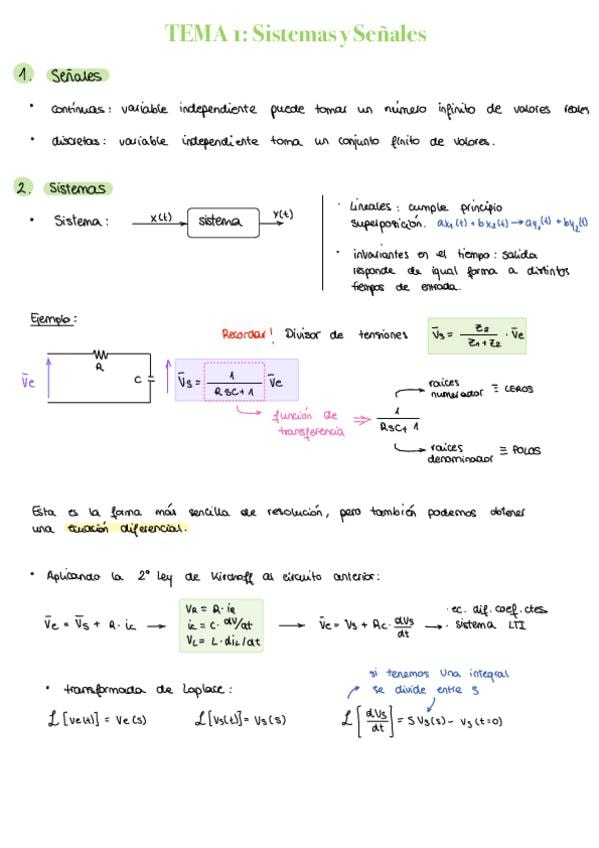 TEMA 1: Sistemas y Señales
1. Señales
• continuas: variable independiente puede tomar un número infinito de valores reales
• discretas: variable independiente toma un conjunto finito de valores.
2. Sistemas
• Sistema: x(t) → sistema → y(t)
• Lineales: cumple principio
superposición. ax₁(t) + bx₂(t) → ay₁(t) + by₂(t)
• invariantes en el tiempo: salida
responde de igual forma a distintos
tiempos de entrada.
Ejemplo:
Recordar! Divisor de tensiones V̄s = Z₂ / (Z₁+Z₂) · V̄e
V̄e R C V̄s = 1 / (RSC+1) V̄e
función de
transferencia ⇒ 1 / (RSC+1)
raíces
numerador ≡ CEROS
raíces
denominador ≡ POLOS
Esta es la forma más sencilla de resolución, pero también podemos obtener
una ecuación diferencial.
• Aplicando la 2º Ley de Kirchoff al circuito anterior:
V̄e = V̄s + R · ic →
VR = R · iR
ic = C · dV/dt
VL = L · diL/dt
→ V̄e = Vs + Rc · dVs/dt →
· ec. dif. coef. ctes
· sistema LTI
• transformada de Laplace:
si tenemos una integral
se divide entre s
ℒ[ve(t)] = Ve(s) ℒ[Vs(t)] = Vs(s) ℒ[dVs/dt] = S Vs(s) - Vs(t=0)